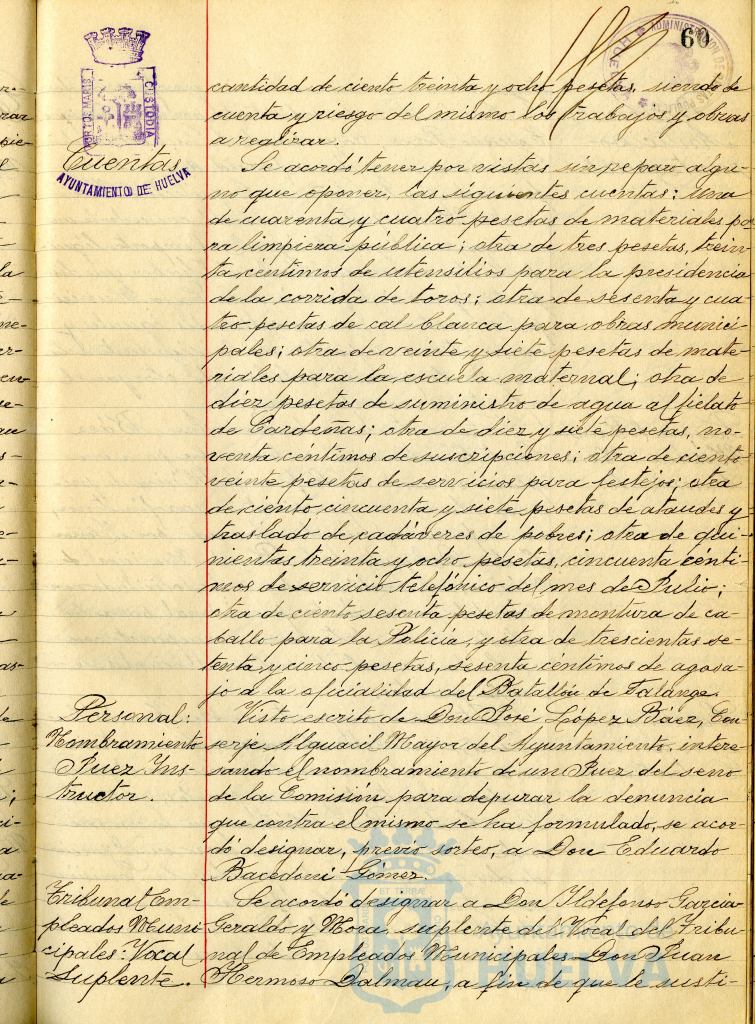 60
PORTUS MARIS
CUSTODIA
AYUNTAMIENTO DE HUELVA
cantidad de ciento treinta y ocho pesetas, siendo de
cuenta y riesgo del mismo los trabajos y obras
a realizar.
Cuentas
Se acordó tener por vistas sin reparo algu-
no que oponer, las siguientes cuentas: Una
de cuarenta y cuatro pesetas de materiales pa-
ra limpieza pública; otra de tres pesetas, trein-
ta céntimos de utensilios para la presidencia
de la corrida de toros; otra de sesenta y cua-
tro pesetas de cal blanca para obras munici-
pales; otra de veinte y siete pesetas de mate-
riales para la escuela maternal; otra de
diez pesetas de suministro de agua al fielato
de Cardeñas; otra de diez y siete pesetas, no-
venta céntimos de suscripciones; otra de ciento
veinte pesetas de servicios para festejos; otra
de ciento cincuenta y siete pesetas de ataudes y
traslado de cadáveres de pobres; otra de qui-
nientas treinta y ocho pesetas, cincuenta cénti-
mos de servicio telefónico del mes de Julio;
otra de ciento sesenta pesetas de montura de ca-
ballo para la Policía, y otra de trescientas se-
tenta y cinco pesetas, sesenta céntimos de agasa-
jo a la oficialidad del Batallón de Falange.
Personal:
Nombramiento
Juez Ins-
tructor.
Visto escrito de Don José López Báez, Con-
serje Alguacil Mayor del Ayuntamiento, intere-
sando el nombramiento de un Juez del seno
de la Comisión para depurar la denuncia
que contra el mismo se ha formulado, se acor-
dó designar, previo sorteo, a Don Eduardo
Gómez.
Tribunal Em-
pleados Muni-
cipales: Vocal
Suplente.
Se acordó designar a Don Ildefonso Garcia-
Geraldo y Mora, suplente del Vocal del Tribu-
nal de Empleados Municipales Don Juan
Hermoso Dalmau, a fin de que le susti-
Ayuntamiento de
HUELVA